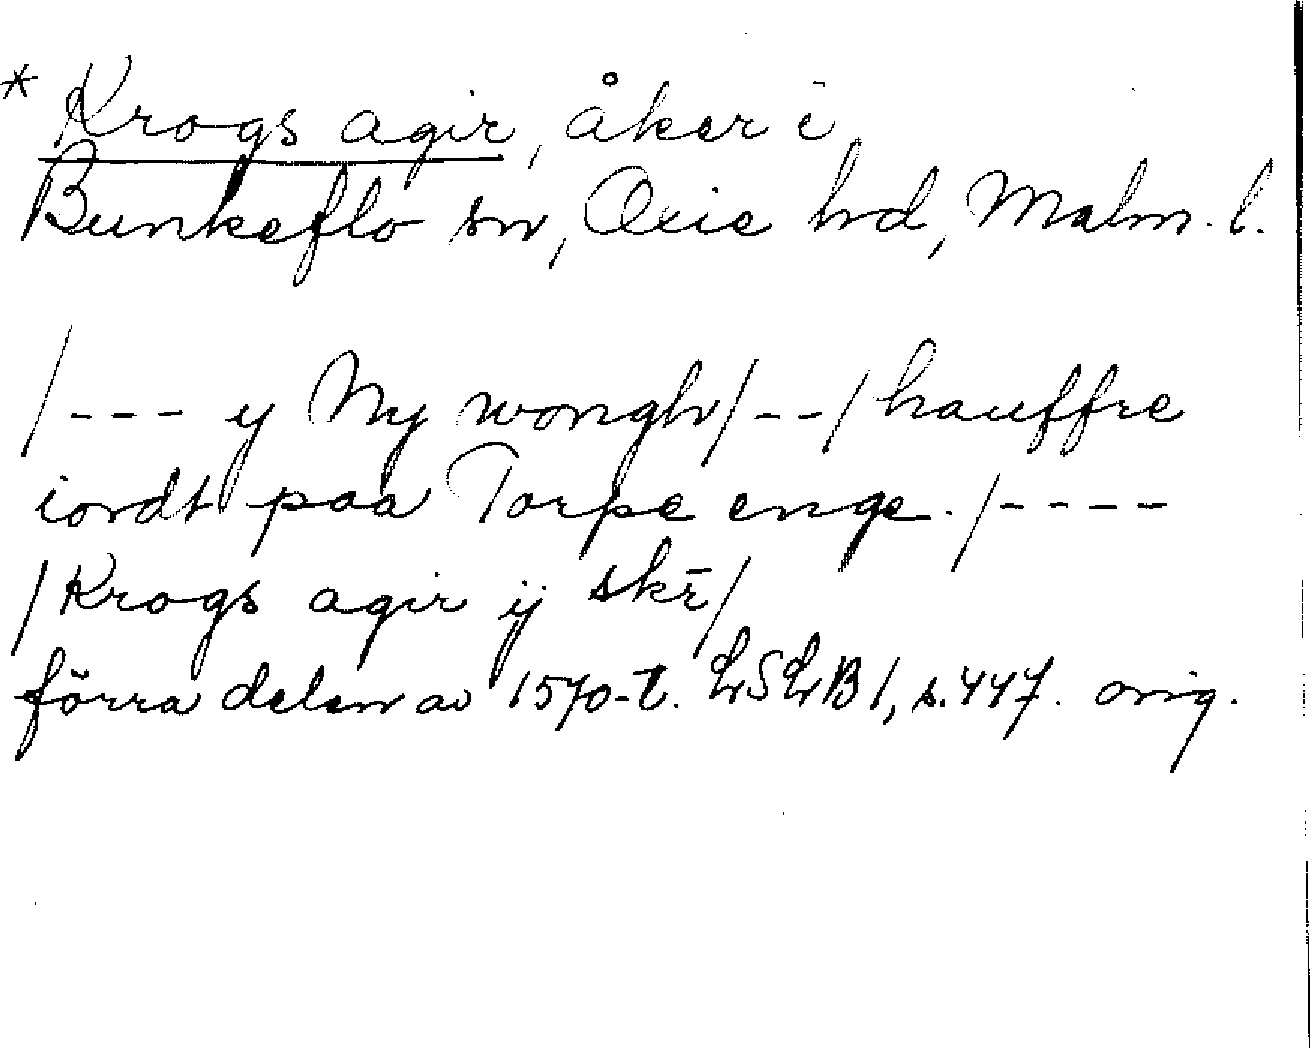 * Krogs agir, åker i
Bunkeflo sn, Oxie hd, Malm. l.
/--- y Ny wongh/--/hauffre
iordt paa Torpe enge./----
/Krogs agir ij skr̄/
förra delen av 1570-t. LSLB 1, s. 447. orig.